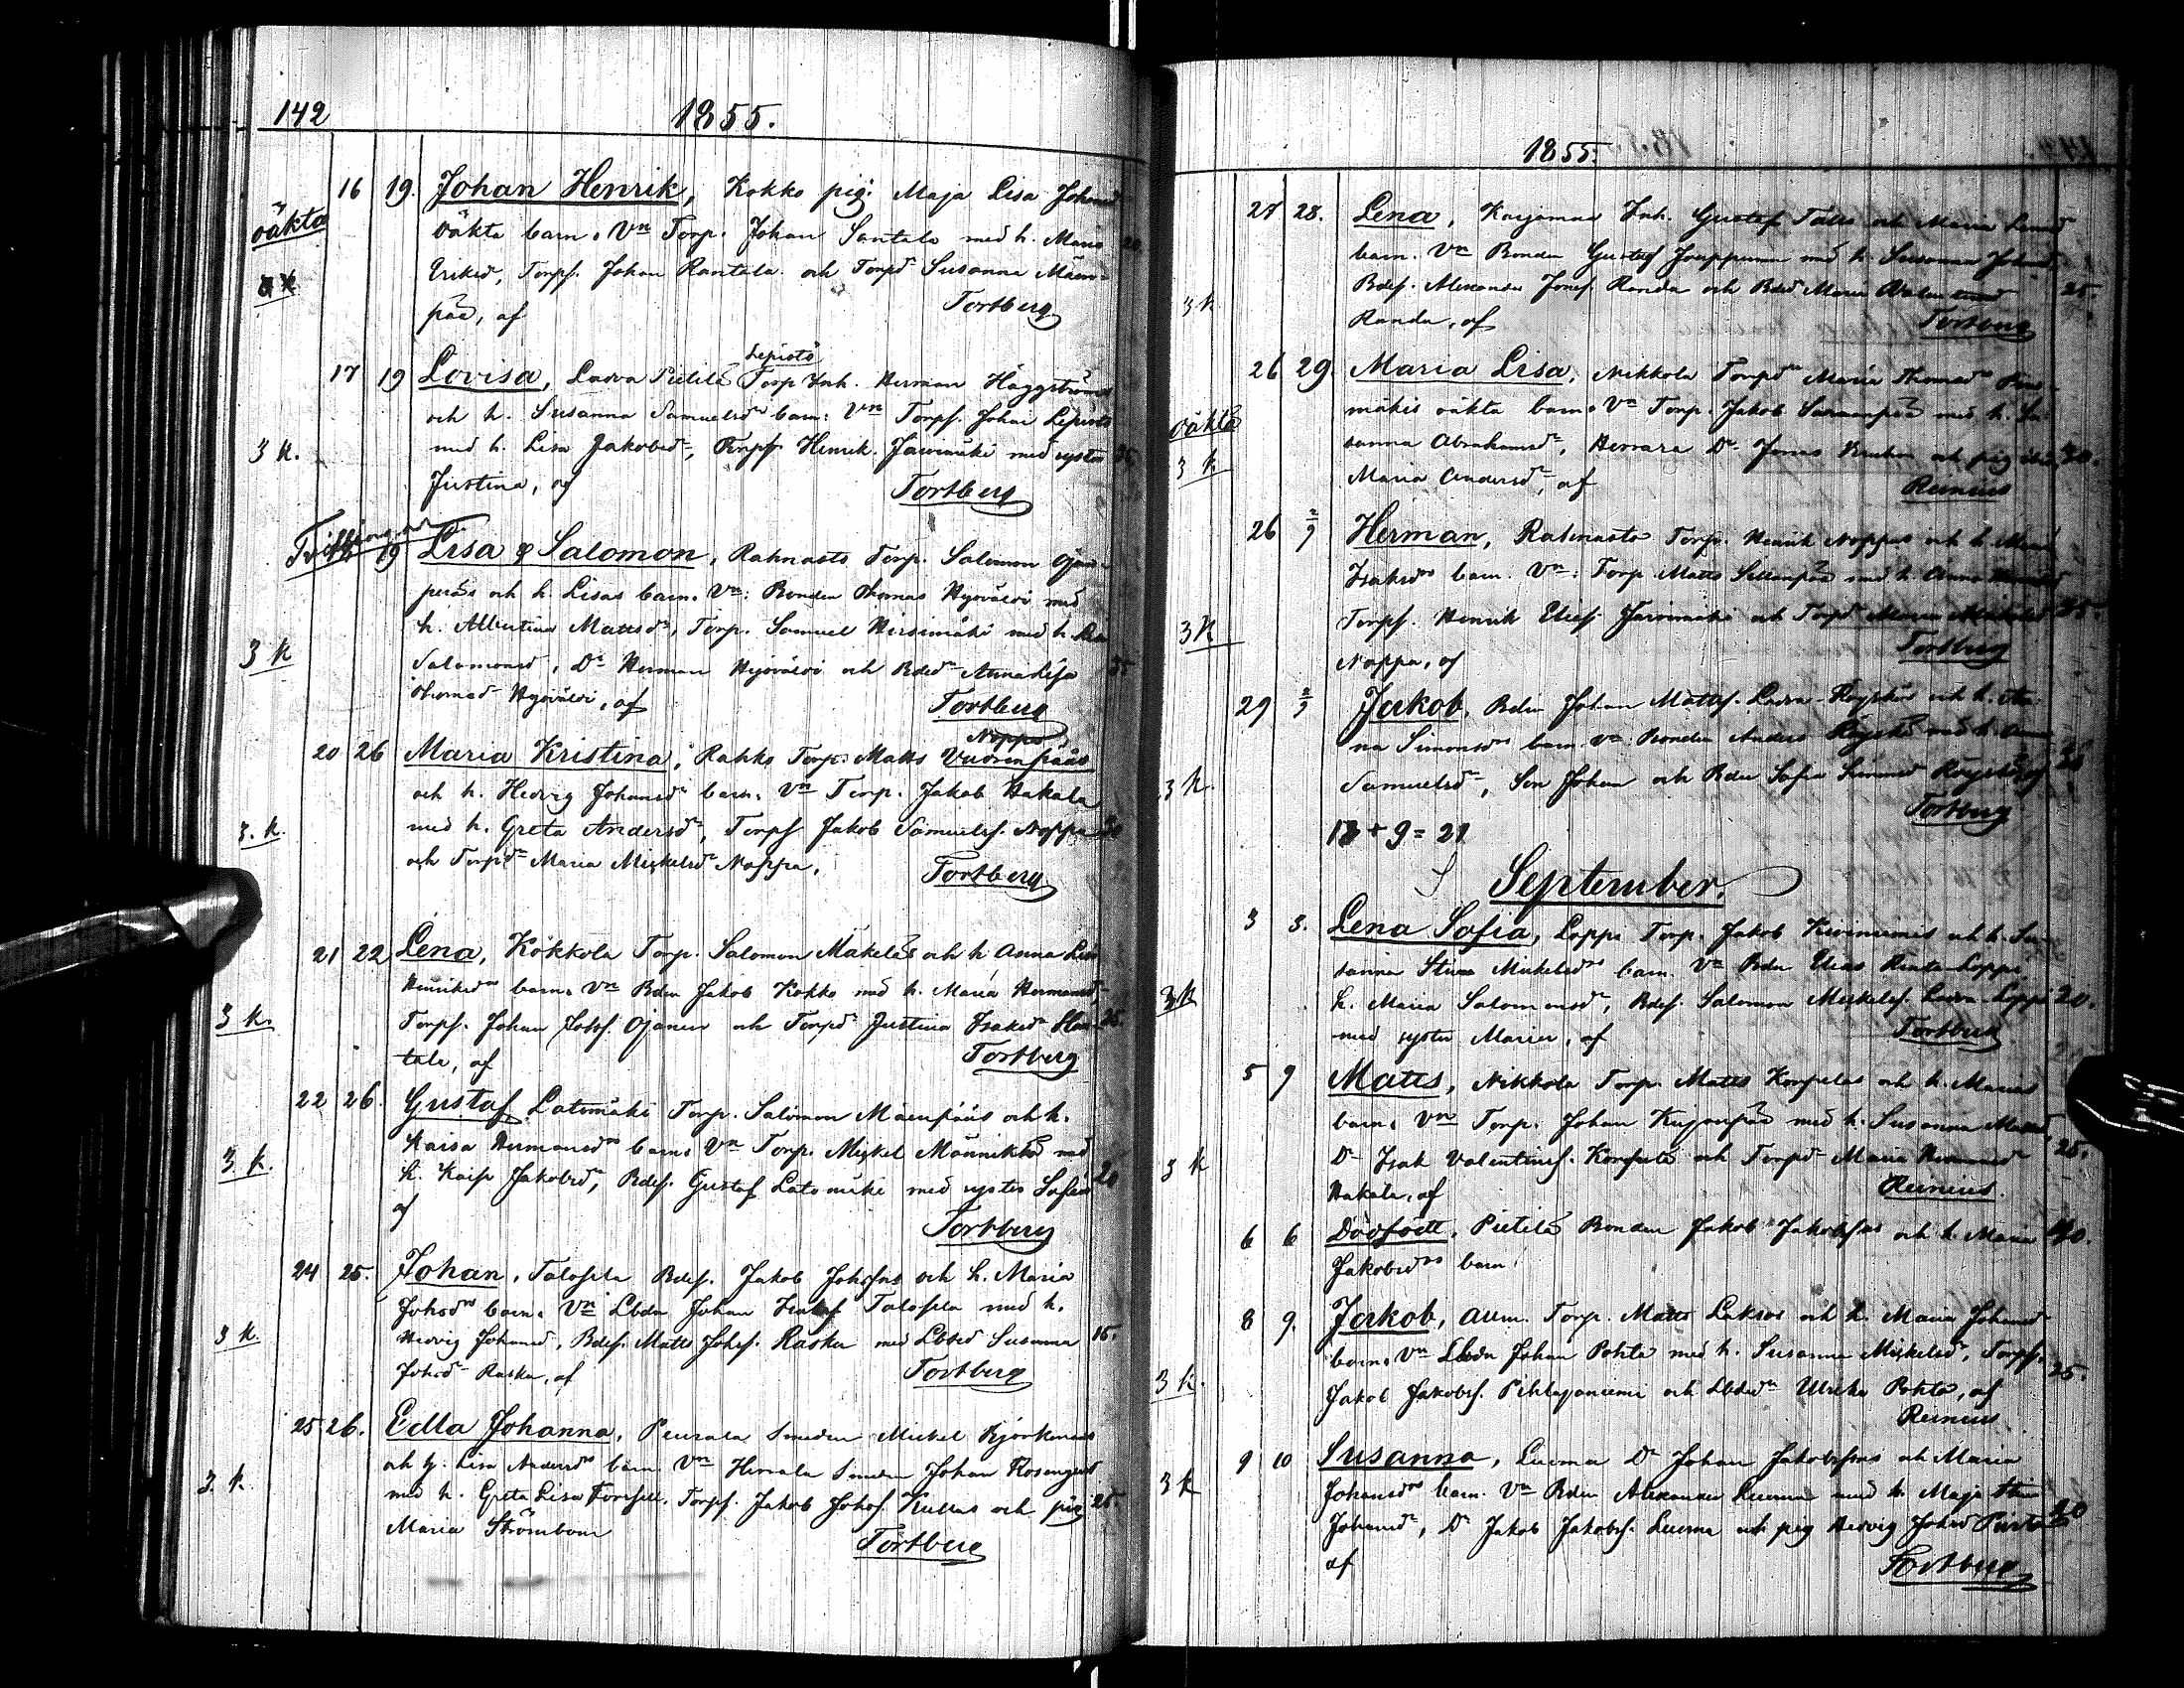 142 1855.
oäkta 16 19. Johan Henrik, Kokko pig. Maja Lisa Johansd
oäkta barn. Vn Torp. Johan Santala med h. Maria 20.
Eriksd, Torps. Johan Rantala och Torpd Susanna Mäen-
pää, af Tortberg
Lepistö
17 19 Lovisa, Laeva Pietilä Torp Inh. Herman Häggströms
och h. Susanna Samuelsd barn. Vn Torps. Johan Lepistö
3 k. med h. Lisa Jakobsd, Torps. Henrik Järvimäki med syster
Justina, af Tortberg
Tvillingar 19 Lisa & Salomon, Rahnasto Torp. Salomon Ojan-
peräs och h. Lisas barn. Vn: Bonden Thomas Hyöväldi med
h. Albertina Mattsd, Torp. Samuel Hirsimäki med h.
3 k Salomonsd, Dr Herman Hyöväldi och Bdsd Anna Lisa
Thomasd Hyöväldi, af Tortberg
Noppa
20 26 Maria Kristina, Rahko Torp. Matts Vuorenpääs
och h. Hedvig Johansd barn. Vn Torp. Jakob Hakala
3. k. med h. Greta Andersd, Torps Jakob Samuelss. Noppa 20
och Torpd Maria Mickelsd Noppa. Tortberg
21 22 Lena, Kokkola Torp. Salomon Mäkeläs och h Anna Lisa
Henriksd barn. Vn Bdn Jakob Kokko med h. Maria Hermansd,
3 k. Torps. Johan Johss. Ojanen och Torpd Justina Isaksd Han- 25.
tala, af Tortberg
22 26. Gustaf Latomäki Torp. Salomon Mäenpääs och h.
3 k. Kaisa Hermansd barn. Vn Torp. Mickel Männikkö med
h. Kaisa Jakobsd, Bdss. Gustaf Latomäki med syster Sofia 20
af Tortberg
24 25. Johan, Talosela Bdss. Jakob Johssons och h. Maria
Johsd barn. Vn Lbdn Johan Isakss Talosela med h.
3 k. Hedvig Johansd, Bdss. Matts Johss. Raska med Lbdsd Susanna 15.
Johsd Raska, af Tortberg
25 26. Edla Johanna, Peurala Smeden Mickel Björkmans
och h. Lisa Andersd barn. Vn Herrala Smeden Johan Rosengren
3. k med h. Greta Lisa Forssell, Torps. Jakob Johss. Kullas och pig 25
Maria Strömbom Tortberg
1855.
27 28. Lena, Karjanmaa Inh. Gustaf Talus och Maria
barn. Vn Bonden Gustaf Jouppunen med h. Susanna Johansd,
3 k Bdss. Alexander Jonss. Randa och Bdsd Maria 25.
Randa, af Tortberg
26 29. Maria Lisa, Nikkola Torpd Maria Thomasd
oäkta mäkis oäkta barn. Vn Torp. Jakob Saarenpää med h. Su-
3 k sanna Abrahamsd, Herrara Dr. Jonas och pig 20.
Maria Andersd, af Reinius
26 2/9 Herman, Rahnasto Torp. Henrik Noppas och h.
Isaksd barn. Vn: Torp. Matts Sillanpää med h. Anna
3 k Torps. Henrik Eliass. Järvimäki och Torpd Maria Mickelsd 25.
Noppa, af Tortberg
29 2/9 Jakob, Bdn Johan Mattss. Laeva Röyskös och h. An-
na Simonsd barn. Vn Bonden Anders Röyskö med h. Anna
3 k. Samuelsd, Son Johan och Bdn Sofia Röyskö af 25
Tortberg
12 + 9 = 21
September.
3 3. Lena Sofia, Loppi Torp. Jakob Kivinimis och h. Su-
sanna Stina Mickelsd barn. Vn Bdn Elias Ranta Loppi,
3 k h. Maria Salomonsd, Bdss. Salomon Mickelss. Laeva-Loppi 20.
med syster Maria, af Tortberg
5 9 Matts, Nikkola Torp. Matts Korpelas och h. Marias
barn. Vn Torp. Johan Kujanpää med h. Susanna Mattsd,
3 k Dr Isak Valentinss. Korpela och Torpd Maria Hermansd 25.
Hakala, af Reinius.
6 6 Dödfödt, Pietilä Bonden Jakob Jakobssons och h. Maria 40.
Jakobsd barn.
8 9 Jakob, Alem. Torp. Matts Laksos och h. Maria Johansd
barn. Vn Lbdn Johan Pohto med h. Susanna Mickelsd, Torps. 25.
3 k. Jakob Jakobss. Pihlajaniemi och Lbdsd Ulrika Pohto, af
Reinius
9 10 Susanna, Luoma Dr Johan Jakobssons och Maria
3 k Johansd barn. Vn Bdn Alexander Luoma med h. Maja Stina
Johansd, Dr Jakob Jakobss. Luoma och pig Hedvig Johsd 20
af Tortberg